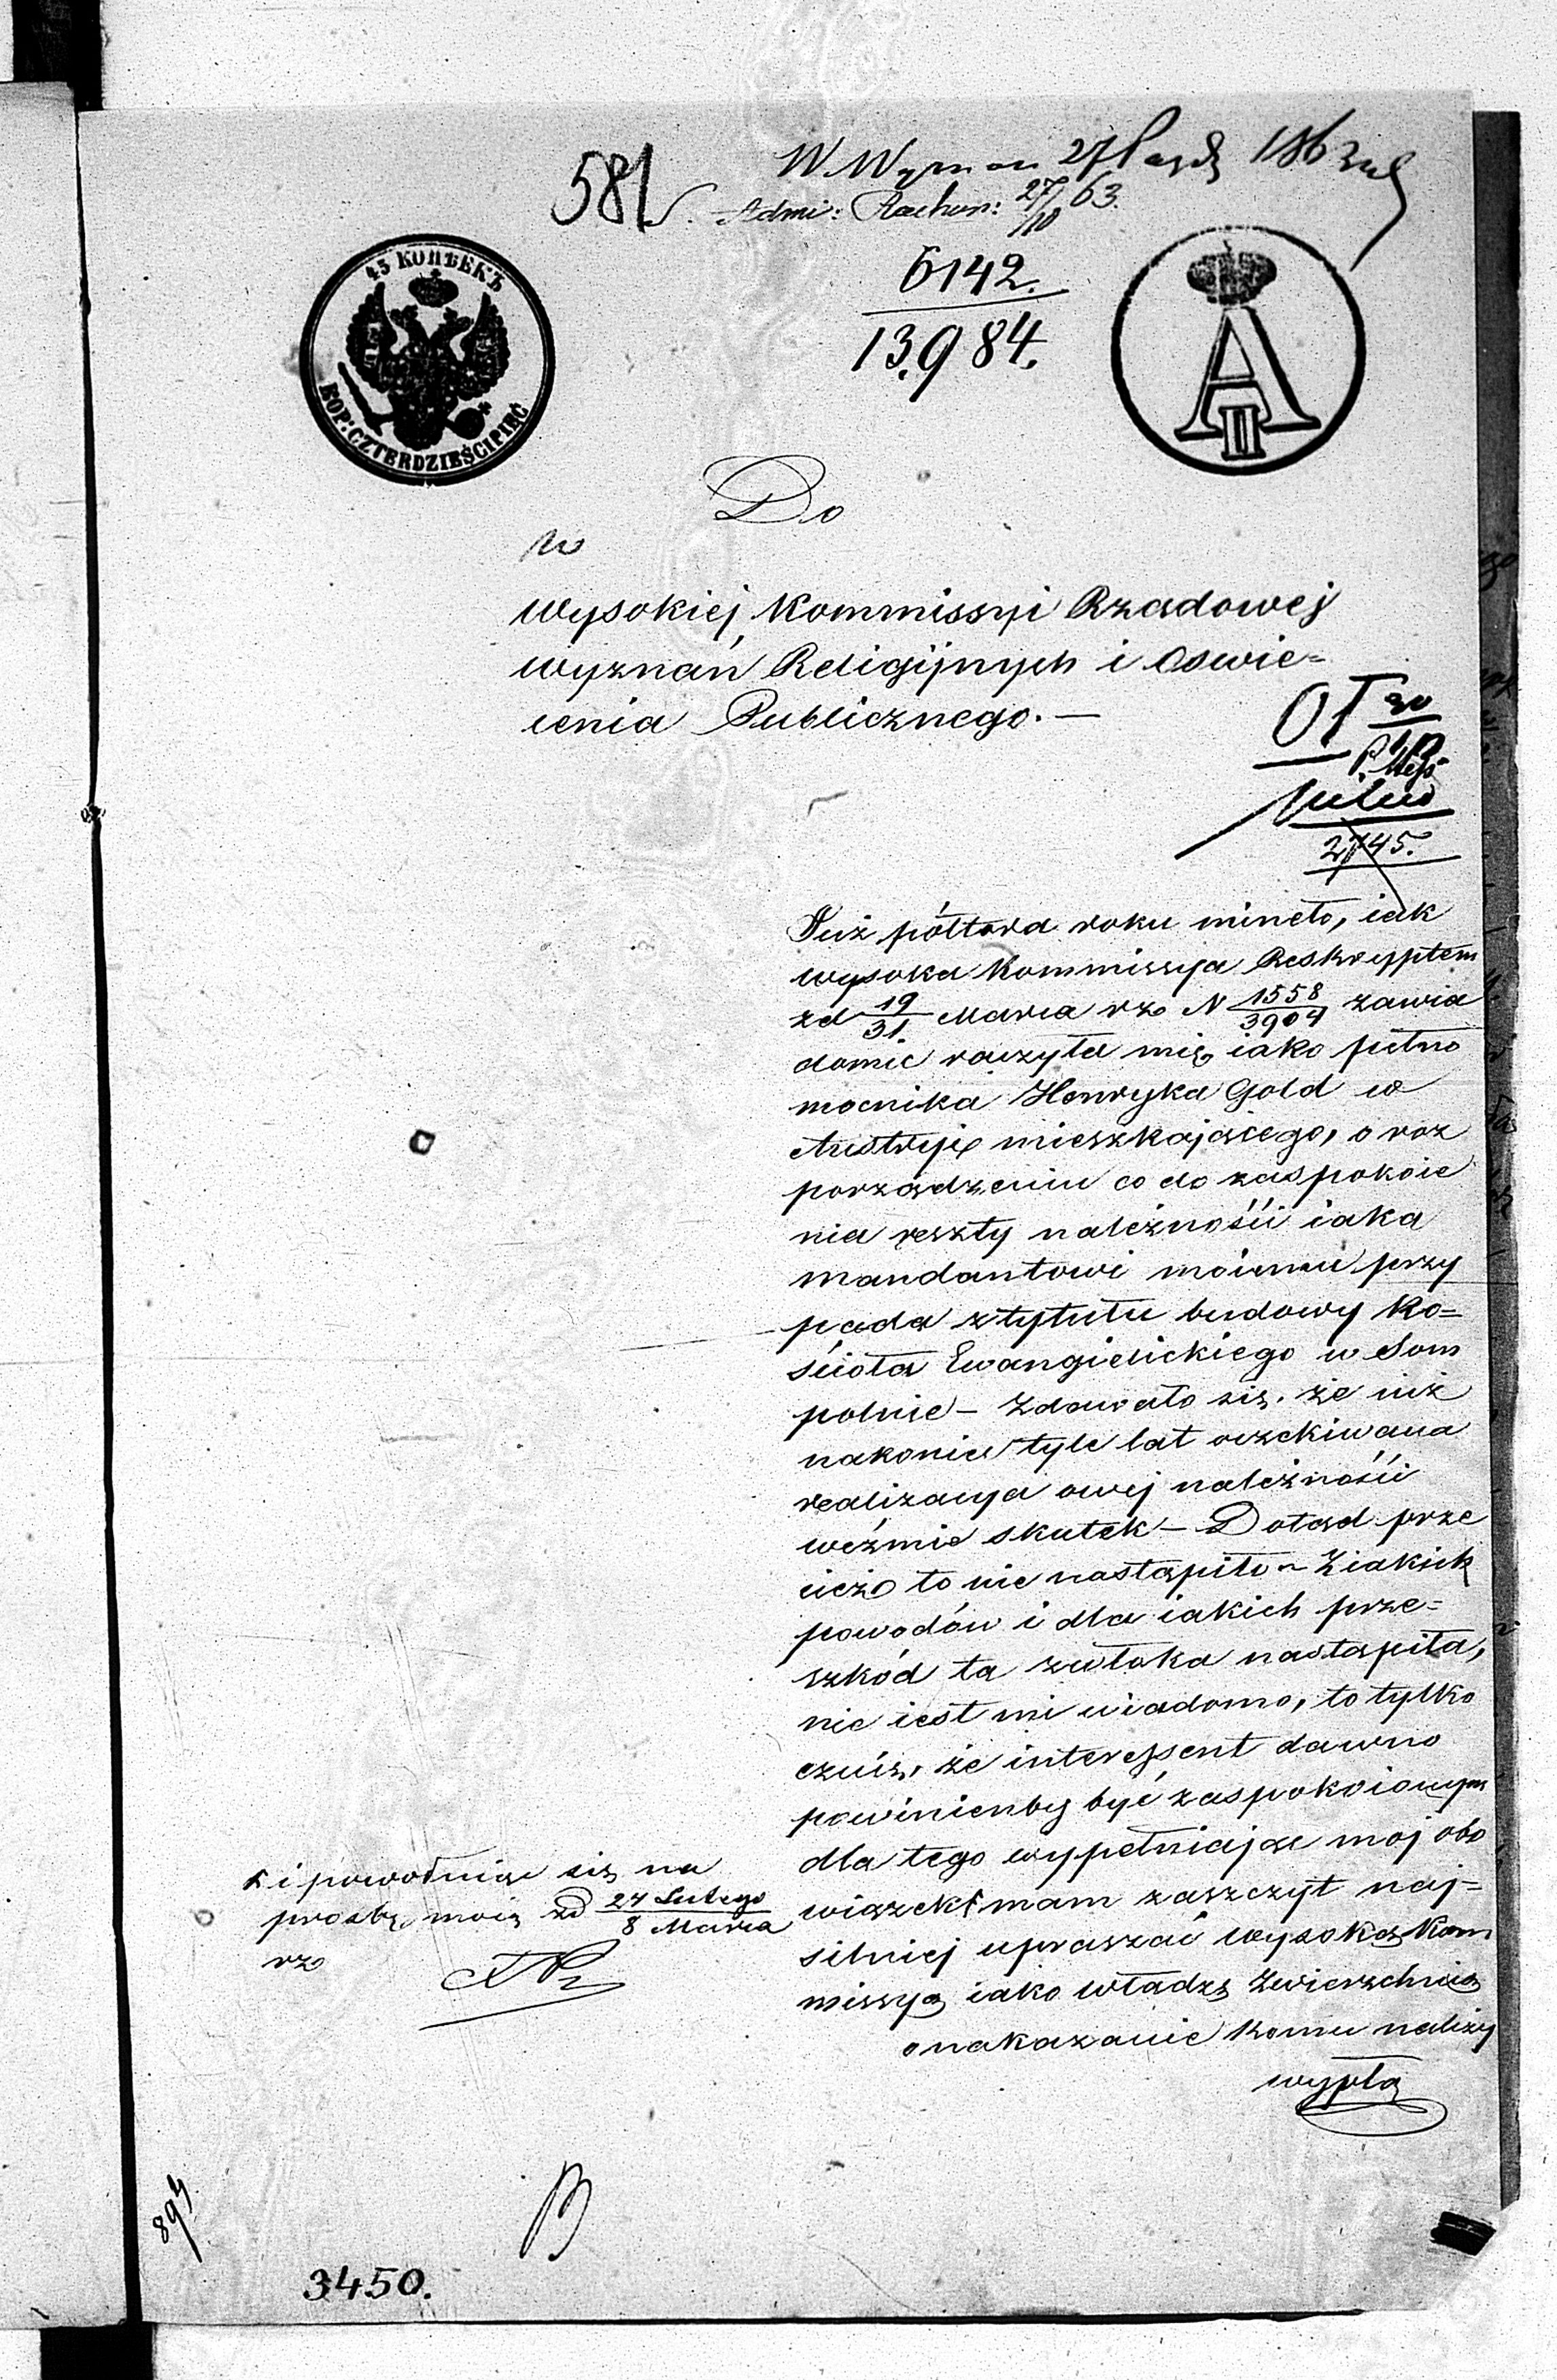 581
W. Wyznan 27 Paźdz 1863
Admi: Rachun: 27/10 63.
6142.
13.984.
45 КОПѢЕКЪ
KOP: CZTERDZIEŚCI PIĘĆ
A II
Do
W
Wysokiej Kommissyi Rządowej
Wyznań Religijnych i Oswie=
cenia Publicznego. —
2745.
Już półtora roku mineło, iak
Wysoka Kommissyia Reskryptem
zd 19/31 Marca rz N 1558/3904 zawia
domić raczyła mię iako pełno
mocnika Henryka Gold w
Austryi mieszkającego, o roz
porządzeniu co do zaspokoie
nia reszty należności iaka
mandantowi moiemu przy
pada z tytułu budowy Ko=
ścioła Ewangielickiego w Som
polnie – Zdawało się, że iuż
nakoniec tyle lat oczekiwana
realizacya owej należności
weźmie skutek – Dotąd prze
cież to nie nastąpiło – Z iakich
powodów i dla iakich prze=
szkód ta zwłoka nastąpiła,
nie iest mi wiadomo, to tylko
czuię, że interessent dawno
powinienby być zaspokoionym
dla tego wypełniając moj obo
wiązek mam zaszczyt naj=
silniej upraszać Wysoką Kom
missyą iako Władzę Zwierzchnią
o nakazanie komu należy
wypła
i powołuiąc się na
prosbę moią zd 24 Lutego/8 Marca
rz
894
3450.